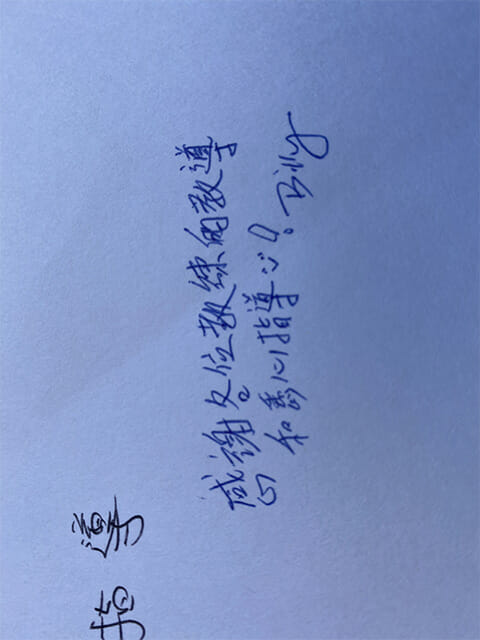 感謝各位教練的教導
和專心指導☺! Billy
指導